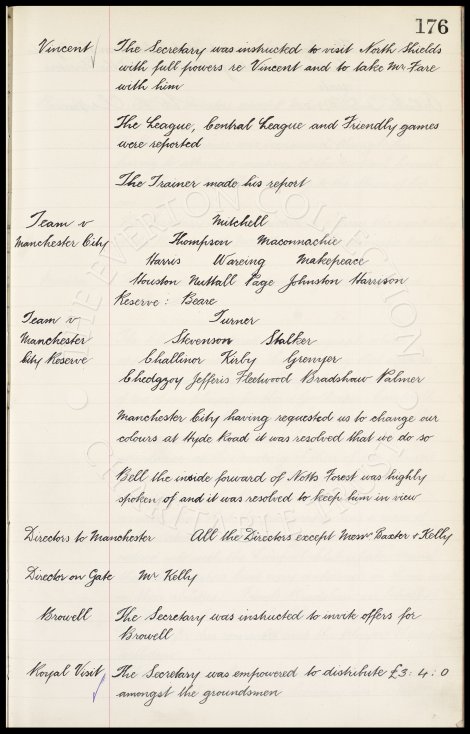 176
Vincent The Secretary was instructed to visit North Shields
with full powers re Vincent and to take Mr Fare
with him
The League, Central League and Friendly games
were reported
The Trainer made his report
Team v Mitchell
Manchester City Thompson Maconnachie
Harris Wareing Makepeace
Houston Nuttall Page Johnston Harrison
Reserve : Beare
Team v Turner
Manchester Stevenson Stalker
City Reserve Challinor Kirby Grenyer
Chedgzoy Jefferis Fleetwood Bradshaw Palmer
Manchester City having requested us to change our
colours at Hyde Road it was resolved that we do so
Bell the inside forward of Notts Forest was highly
spoken of and it was resolved to keep him in view
Directors to Manchester All the Directors except Messrs Baxter & Kelly
Director on Gate Mr Kelly
Browell The Secretary was instructed to invite offers for
Browell
Royal Visit The Secretary was empowered to distribute £3 : 4 : 0
amongst the groundsmen
THE EVERTON COLLECTION
CHARITABLE TRUST